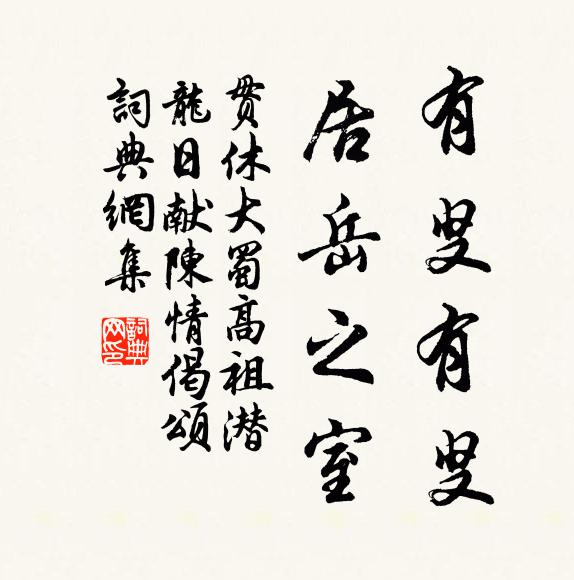 有叟有叟
居岳之室
贯休大蜀高祖潜
龍日献陳情偈頌
詞典網集
詞典网印